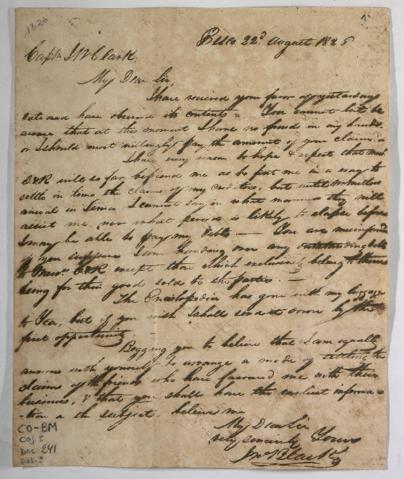 1826
1
Pisco 22d August 1826
Captn J. W. Clark,
My Dear Sir,
I have received your favor of yesterdays
date and have observed its contents – You cannot but be
aware that at this moment I have no funds in my hands
or I should most willingly pay the amount of your claim.
I have every reason to hope & expect that
will so far befriend me as to put me in a way to
settle in time the claims of my creditors, but until
arrival in Lima I cannot say in what manner they will
assist me, nor what period is likely to elapse before
I may be able to pay my debts – You are misinformed
if you suppose I am handing over any outstanding debts
to Messrs except those which exclusively belong to them
being for their goods sold to the parties. –
The Encilopedia has gone with my luggage
to Yca, but if you wish I shall send it down by the
first opportunity.
Begging you to believe that I am equally
anxious with yourself to arrange a mode of settling the
claims of the friends who have favoured me with their
business, & that you shall have the earliest informa-
tion on the subject, believe me
My Dear Sir
very sincerely Yours
CO-BM
Caj 5
Doc 241